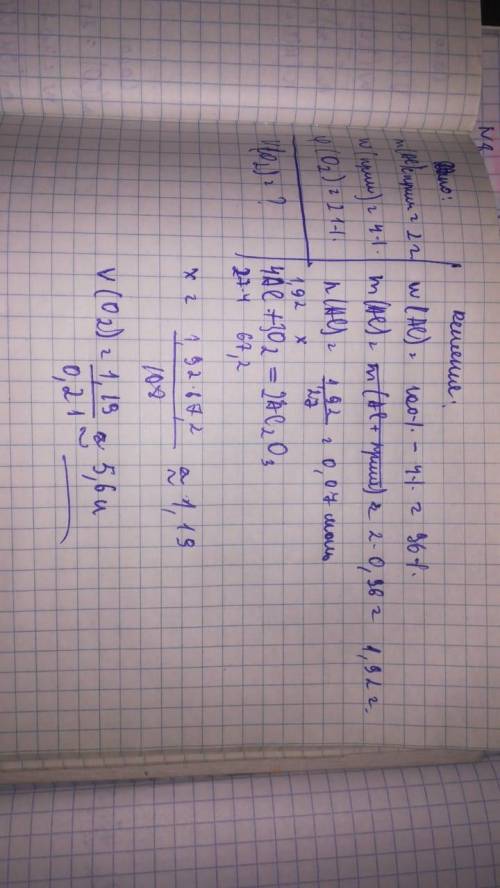 N4
Дано:
m(Al)прим = 2г
w(прим) = 4%
φ(O₂) = 21%
V(O₂) = ?
Решение:
w(Al) = 100% - 4% = 96%
m(Al) = m(Al+прим) = 2·0,96 = 1,92г.
n(Al) = 1,92/27 = 0,07 моль
1,92 x
4Al + 3O₂ = 2Al₂O₃
27·4 67,2
x = 1,92·67,2/108 ≈ 1,19
V(O₂) = 1,19/0,21 ≈ 5,6л